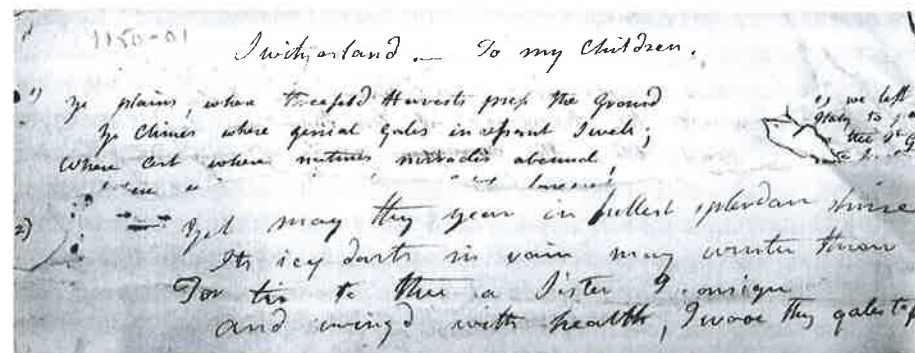 1150-01
Switzerland — To my Children.
1) Ye plains, where threefold Harvests press the Ground
Ye Climes where genial gales incessant swell;
Where art where natures miracles abound
1) we left
Italy to
2) Yet may thy year in fullest splendor shine
Its icy darts in vain may winter throw
For tis to thee a Sister I consign
And wing'd with health, I wooe thy gales to